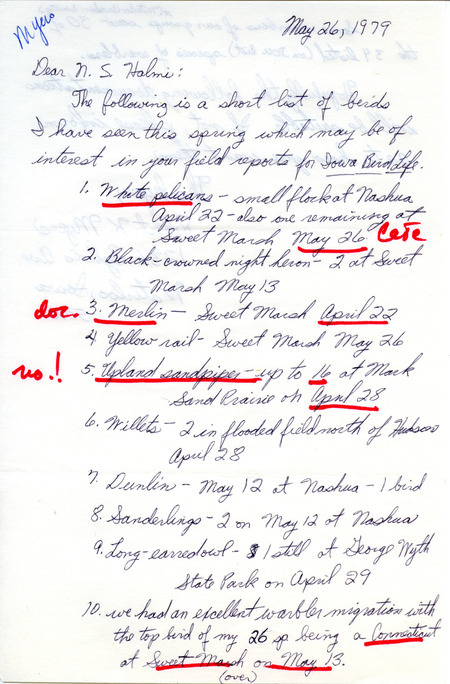 Myers
May 26, 1979
Dear N. S. Halmi:
The following is a short list of birds
I have seen this spring which may be of
interest in your field reports for Iowa Bird Life.
1. White pelicans - small flock at Nashua
April 22 - also one remaining at
Sweet Marsh May 26. Late
2. Black-crowned night heron - 2 at Sweet
Marsh May 13
doc. 3. Merlin - Sweet Marsh April 22
4 Yellow rail - Sweet Marsh May 26
no.! 5. Upland sandpiper - up to 16 at Mark
Sand Prairie on April 28
6. Willets - 2 in flooded field north of Hudson
April 28
7. Dunlin - May 12 at Nashua - 1 bird
8. Sanderlings - 2 on May 12 at Nashua
9. Long-eared owl - 1 still at George Wyth
State Park on April 29
10. we had an excellent warbler migration with
the top bird of my 26 sp being a Connecticut
at Sweet Marsh on May 13.
(over)